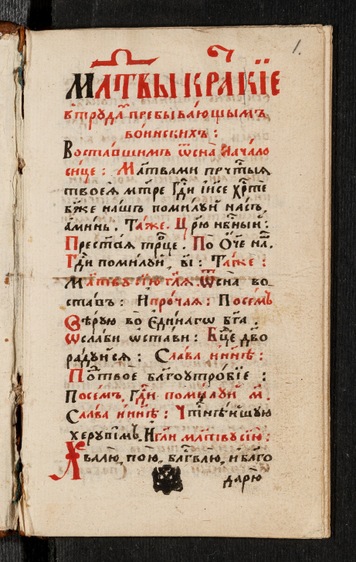 1.
Мл҃твы кракїе
в̾трꙋдѣ пребыва́ющымъ
во́инскихъ :
Воста́вшимъ ѿ сна̀ Начало
си́це : Мл҃твами пречⷭ҇тыѧ
твоеѧ̀ мт҃ре Гдⷭ҇и іи҃се хрⷭ҇те
бж҃е нашъ поми́лꙋй на́съ
ами́нь. Та́же. Цр҃ю нбⷭ҇ный :
Прест҃а́ѧ трⷪ҇це. По Ѻ҆́ч҃е на́.
Гдⷭ҇и поми́лꙋй, в҃і : Та́же :
Мл҃твꙋ сїю̀ гл҃ѧ. Ѿ сна̀ во
ста́въ : И про́чаѧ : Посе́мъ
Вѣ́рꙋю во є҆ди́наго бг҃а.
Ѡ҆сла́би ѡ҆ста́ви : Бц҃е дв҃о
ра́дꙋйсѧ : Сла́ва и҆ ни́нѣ :
Под̾ твоѐ благоꙋтро́бїе :
Посе́мъ, Гдⷭ҇и поми́лꙋй м҃.
Сла́ва и҆ ни́нѣ : Чⷭ҇тнѣ́йшꙋю
херꙋви́мъ. И гл҃и мл҃твꙋ сїю̀ :
Хвалю̀, пою̀, блг҃влю̀, и҆ благо
дарю̀